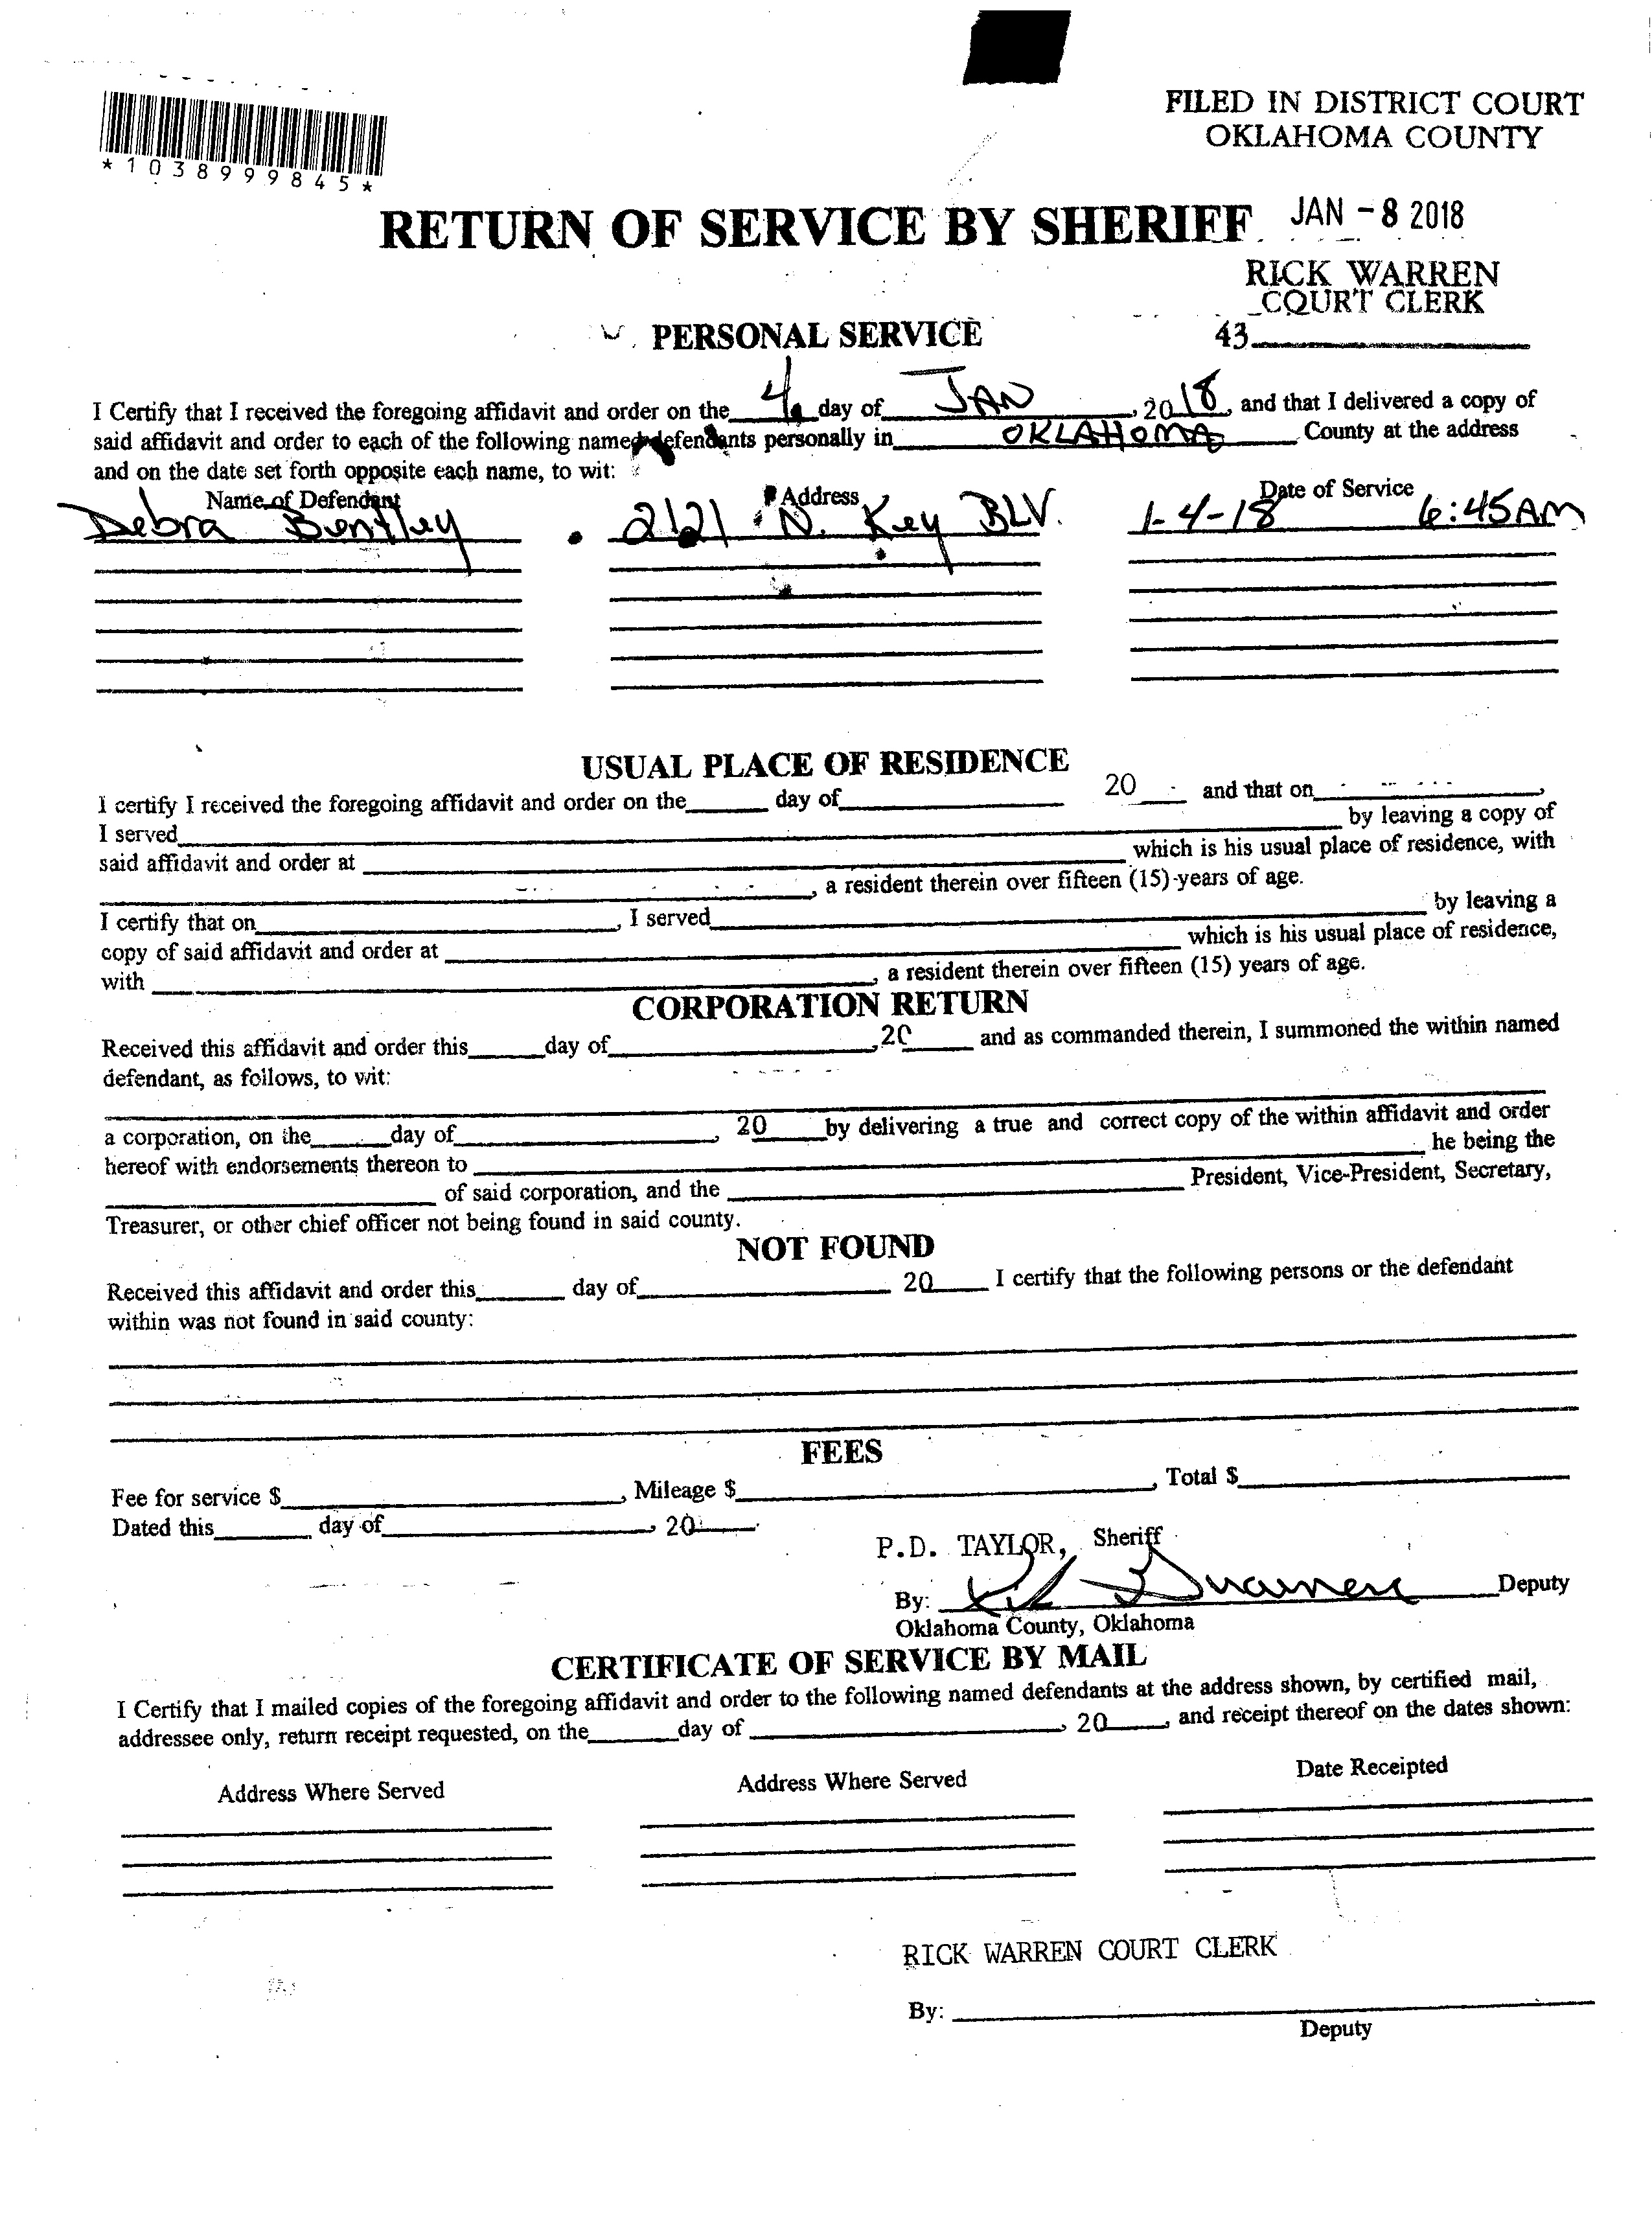 FILED IN DISTRICT COURT
OKLAHOMA COUNTY
*1038999845*
RETURN OF SERVICE BY SHERIFF
JAN - 8 2018
RICK WARREN
COURT CLERK
43
PERSONAL SERVICE
I Certify that I received the foregoing affidavit and order on the 4 day of JAN, 2018, and that I delivered a copy of
said affidavit and order to each of the following named defendants personally in OKLAHOMA County at the address
and on the date set forth opposite each name, to wit:
Name of Defendant Address Date of Service
Debra Bentley 2121 N. Key BLV. 1-4-18 6:45AM
USUAL PLACE OF RESIDENCE
I certify I received the foregoing affidavit and order on the____ day of____ 20__ and that on____,
I served____ by leaving a copy of
said affidavit and order at ____ which is his usual place of residence, with
____, a resident therein over fifteen (15) years of age.
I certify that on____, I served____ by leaving a
copy of said affidavit and order at ____ which is his usual place of residence,
with ____, a resident therein over fifteen (15) years of age.
CORPORATION RETURN
Received this affidavit and order this____day of____,20____ and as commanded therein, I summoned the within named
defendant, as follows, to wit:
a corporation, on the____day of____, 20____by delivering a true and correct copy of the within affidavit and order
hereof with endorsements thereon to ____ he being the
____ of said corporation, and the ____ President, Vice-President, Secretary,
Treasurer, or other chief officer not being found in said county.
NOT FOUND
Received this affidavit and order this____ day of____ 20____ I certify that the following persons or the defendant
within was not found in said county:
FEES
Fee for service $____, Mileage $____, Total $____
Dated this____ day of____, 20____
P.D. TAYLOR, Sheriff
By: ____ Deputy
Oklahoma County, Oklahoma
CERTIFICATE OF SERVICE BY MAIL
I Certify that I mailed copies of the foregoing affidavit and order to the following named defendants at the address shown, by certified mail,
addressee only, return receipt requested, on the____day of ____, 20____, and receipt thereof on the dates shown:
Address Where Served Address Where Served Date Receipted
RICK WARREN COURT CLERK
By: ____
Deputy